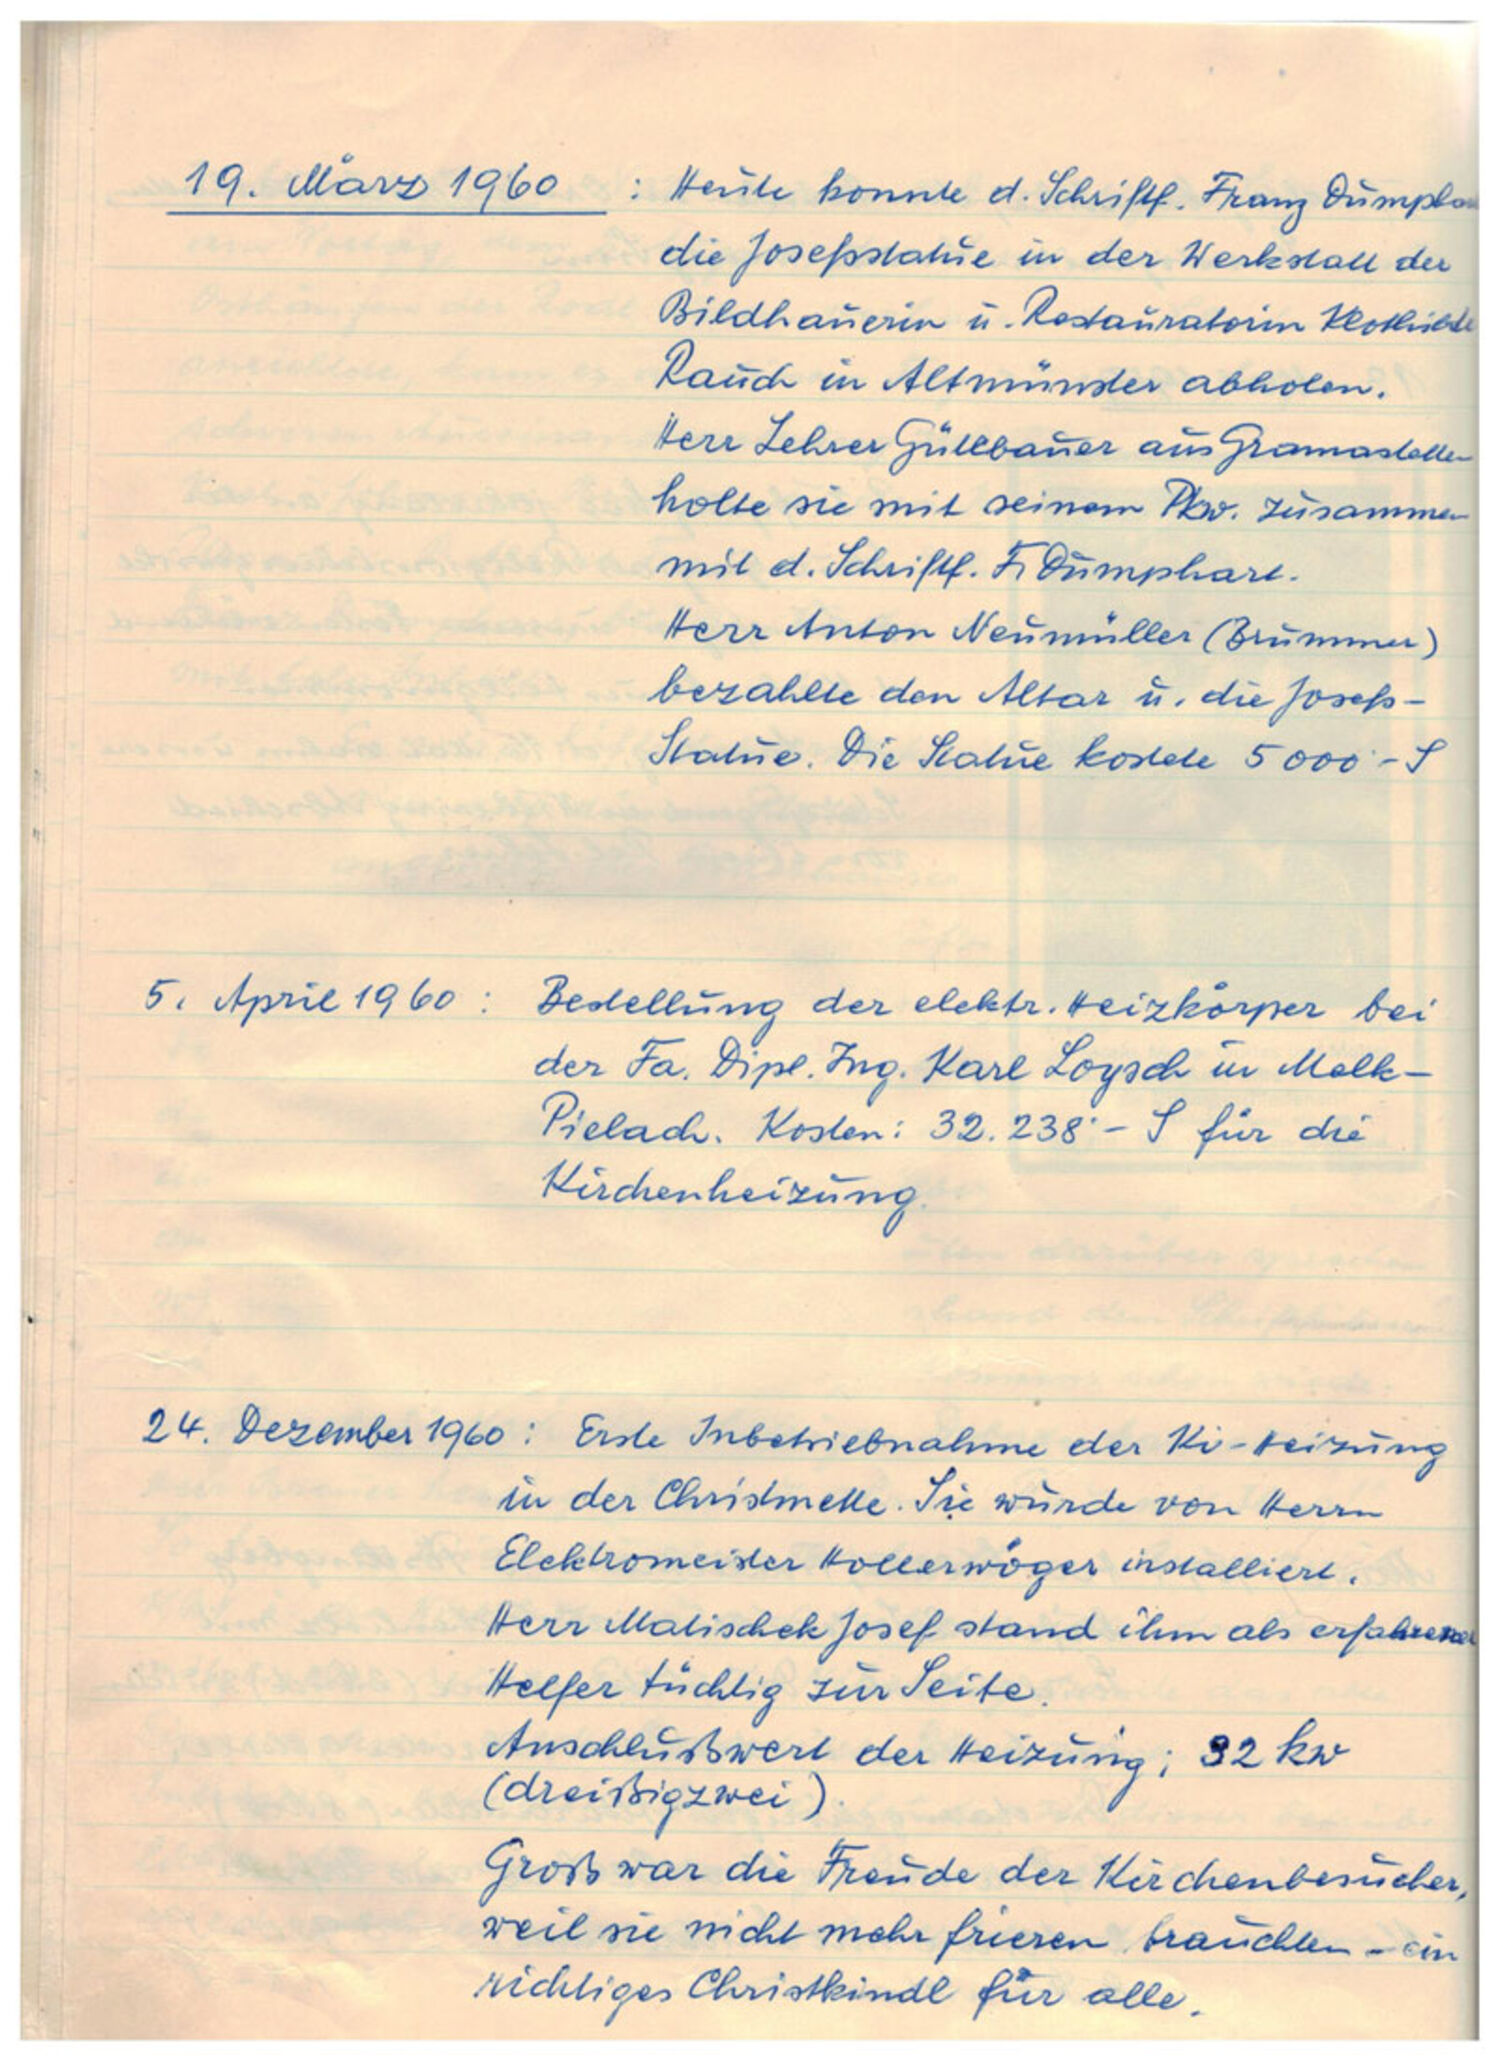 19. März 1960 : Heute konnte d. Schriftf. Franz Dumphart
die Josefsstatue in der Werkstatt der
Bildhauerin u. Restauratorin Klothilde
Rauch in Altmünster abholen.
Herr Lehrer Güllbauer aus Gramastetten
holte sie mit seinem Pkw. zusammen
mit d. Schriftf. F. Dumphart.
Herr Anton Neumüller (Brummer)
bezahlte den Altar u. die Josefs-
Statue. Die Statue kostete 5000·- S
5. April 1960 : Bestellung der elektr. Heizkörper bei
der Fa. Dipl. Ing. Karl Loysch in Melk-
Pielach. Kosten: 32.238·- S für die
Kirchenheizung.
24. Dezember 1960 : Erste Inbetriebnahme der Ki-Heizung
in der Christmette. Sie wurde von Herrn
Elektromeister Hollerwöger installiert.
Herr Matischek Josef stand ihm als erfahrener
Helfer tüchtig zur Seite.
Anschlußwert der Heizung; 32 kw
(dreißigzwei).
Groß war die Freude der Kirchenbesucher,
weil sie nicht mehr frieren brauchten - ein
richtiges Christkindl für alle.